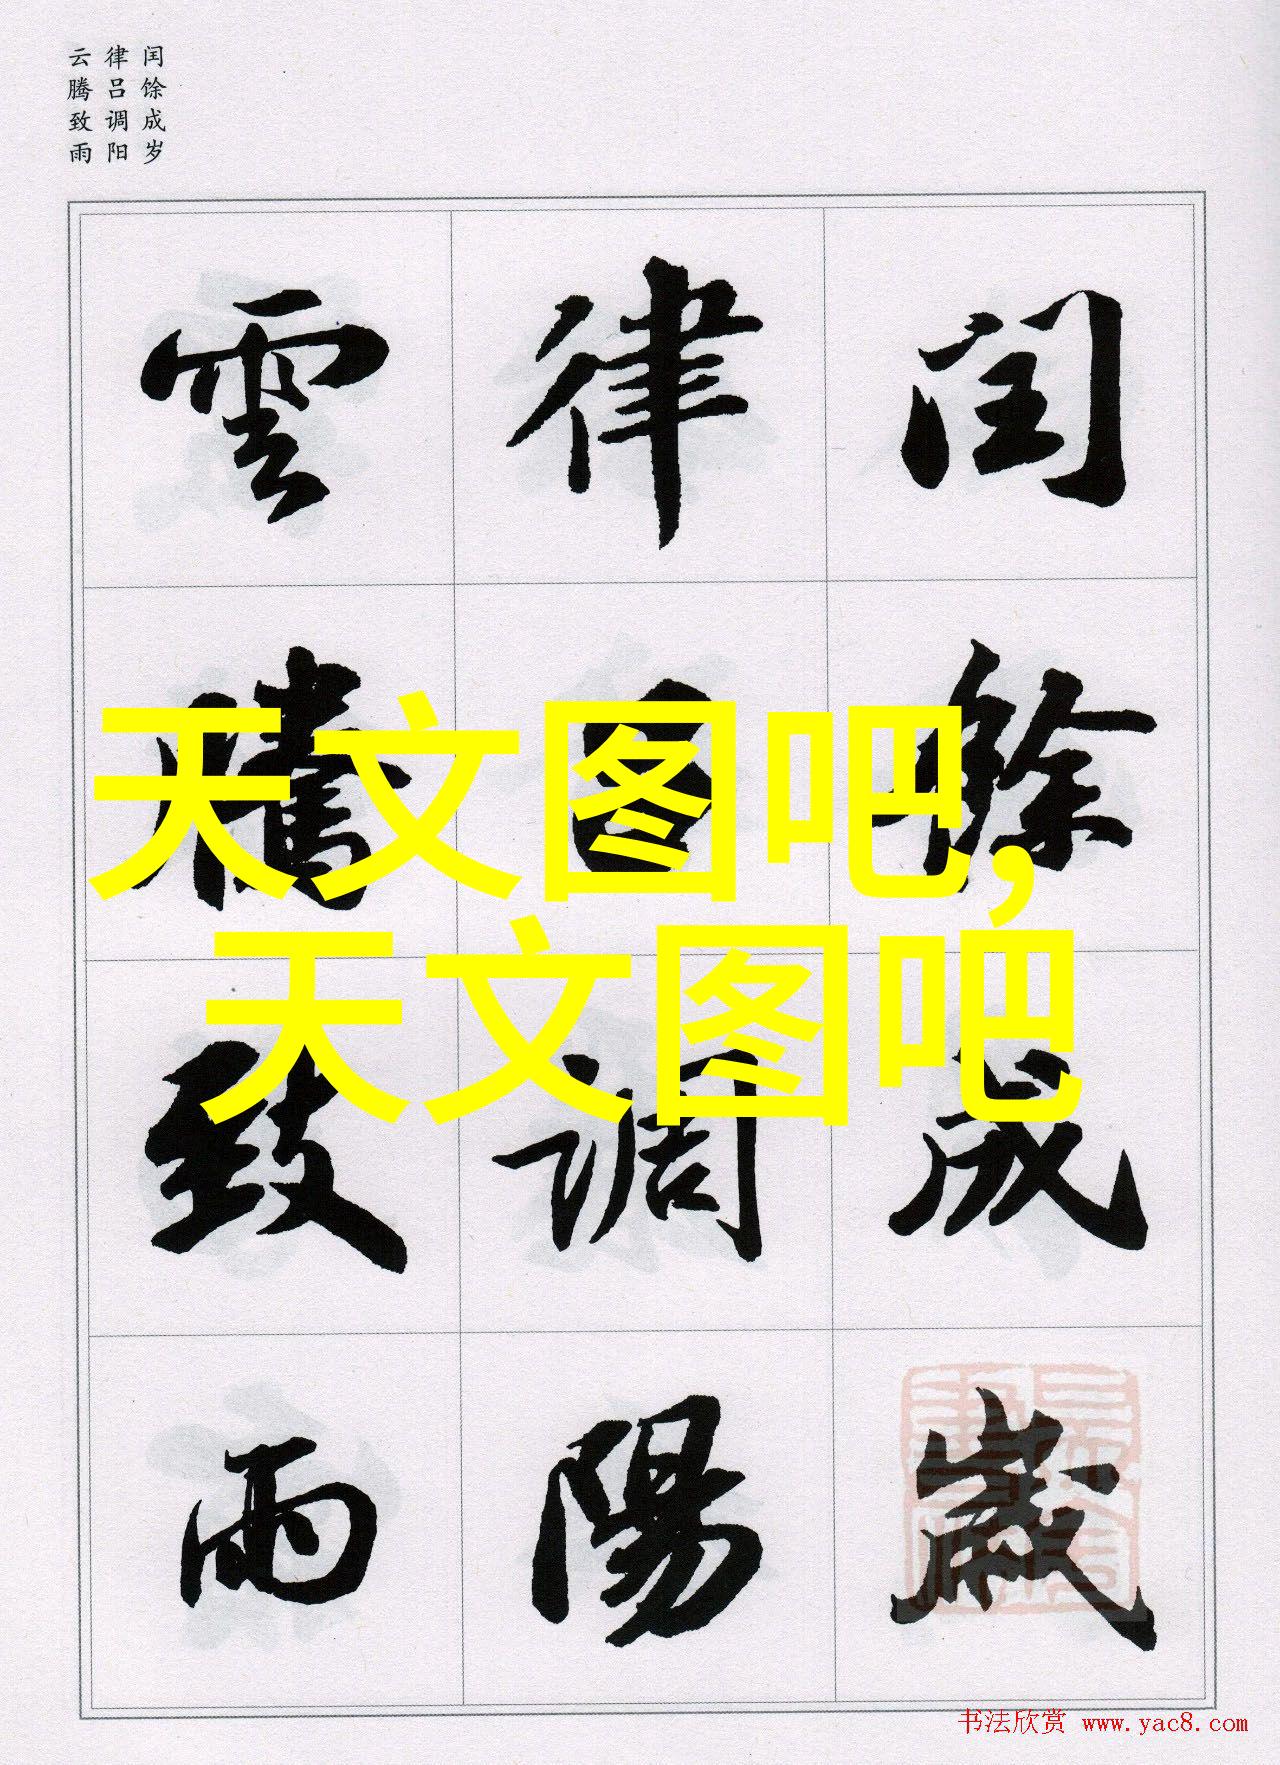 闰馀成岁
律吕调阳
云腾致雨
闰餘成歲
律吕调陽
雲騰致雨
天文图吧,
天文图吧
书法欣赏 www.yac8.com